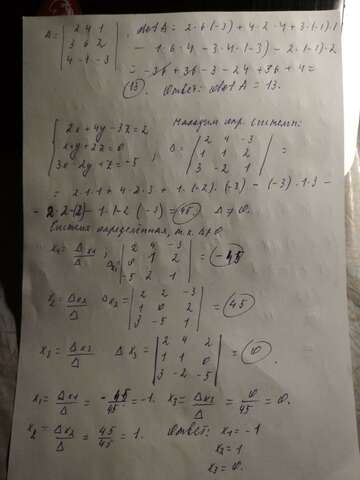 A = | 2 4 1 | . det A = 2·6·(-3) + 4·2·4 + 3·(-1)·1
| 3 6 2 | - 1·6·4 - 3·4·(-3) - 2·(-1)·2
| 4 -1 -3 | = -36 + 36 - 3 - 24 + 36 + 4 =
13. Ответ: det A = 13.
{ 2x + 4y - 3z = 2 Находим опр. системы:
x + y + 2z = 0 ; Δ = | 2 4 -3 |
3x - 2y + z = -5 | 1 1 2 | =
| 3 -2 1 |
= 2·1·1 + 4·2·3 + 1·(-2)·(-3) - (-3)·1·3 -
- 2·2·(-2) - 1·1·2·(-3) = 45. Δ ≠ 0.
Система определённая, т.к. Δ ≠ 0
x₁ = Δx₁/Δ ; Δx₁ = | 2 4 -3 |
| 0 1 2 | = -45
| -5 2 1 |
x₂ = Δx₂/Δ Δx₂ = | 2 2 -3 |
| 1 0 2 | = 45
| 3 -5 1 |
x₃ = Δx₃/Δ Δx₃ = | 2 4 2 |
| 1 1 0 | = 0
| 3 -2 -5 |
x₁ = Δx₁/Δ = -45/45 = -1. x₃ = Δx₃/Δ = 0/45 = 0.
x₂ = Δx₂/Δ = 45/45 = 1. Ответ: x₁ = -1
x₂ = 1
x₃ = 0.